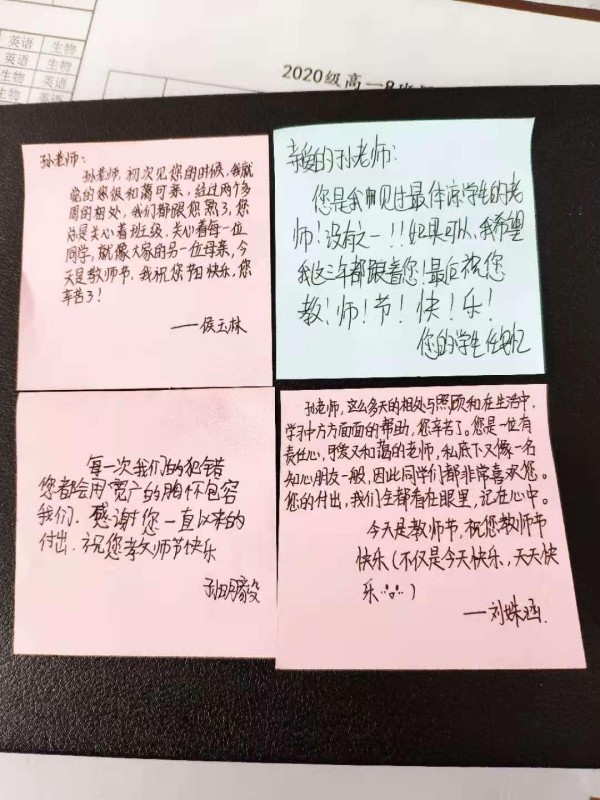 英语 生物
英语 生物
英语 生物
英语 生物
2020级高一8班
孙老师:
孙老师,初次见您的时候,我就
觉的您很和蔼可亲,经过两个多
周的相处,我们都跟您熟了,您
总是关心着班级,关心着每一位
同学,就像大家的另一位母亲,今
天是教师节,我祝您节日快乐,您
辛苦了!
——侯玉林
亲爱的孙老师:
您是我们见过最体谅学生的老
师!没有之一!!如果可以,我希望
我这三年都跟着您!最后祝您
教!师!节!快!乐!
您的学生任
每一次我们的犯错
您都会用宽广的胸怀包容
我们.感谢您一直以来的
付出.祝您教师节快乐
毅
孙老师,这么多天的相处与照顾和在生活中,
学习中方方面面的帮助,您辛苦了。您是一位有
责任心,可爱又和蔼的老师,私底下又像一名
知心朋友一般,因此同学们都非常喜欢您。
您的付出,我们全都看在眼里,记在心中。
今天是教师节,祝您教师节
快乐(不仅是今天快乐,天天快
乐)
——刘姝涵.